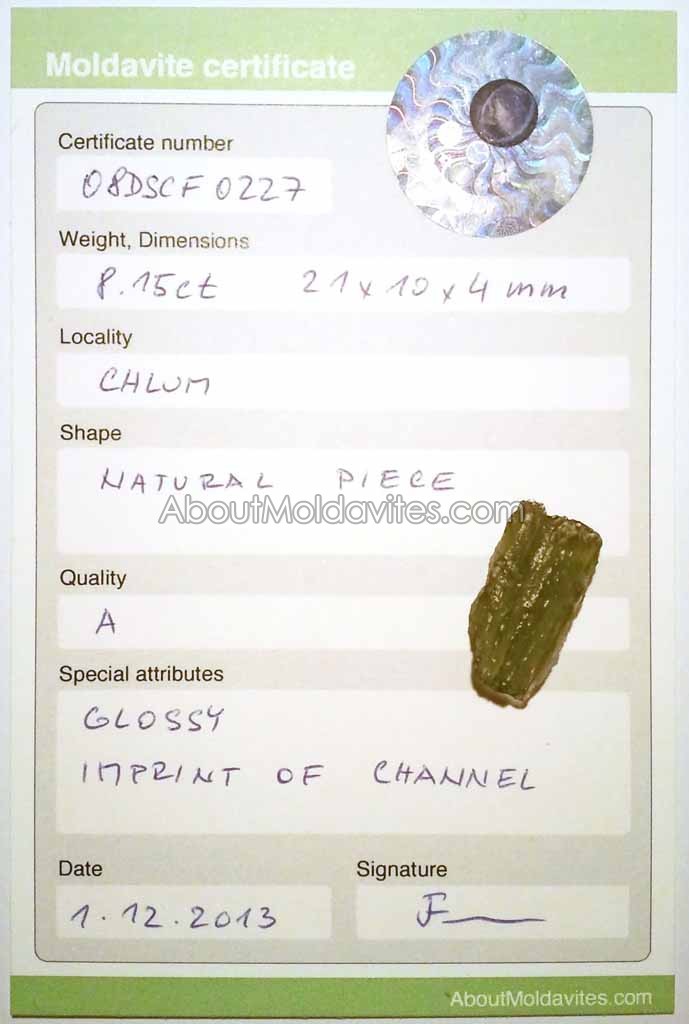 Moldavite certificate
Certificate number
08DSCF0227
Weight, Dimensions
8.15ct 21x10x4 mm
Locality
CHLUM
Shape
NATURAL PIECE
AboutMoldavites.com
Quality
A
Special attributes
GLOSSY
IMPRINT OF CHANNEL
Date Signature
1.12.2013
AboutMoldavites.com